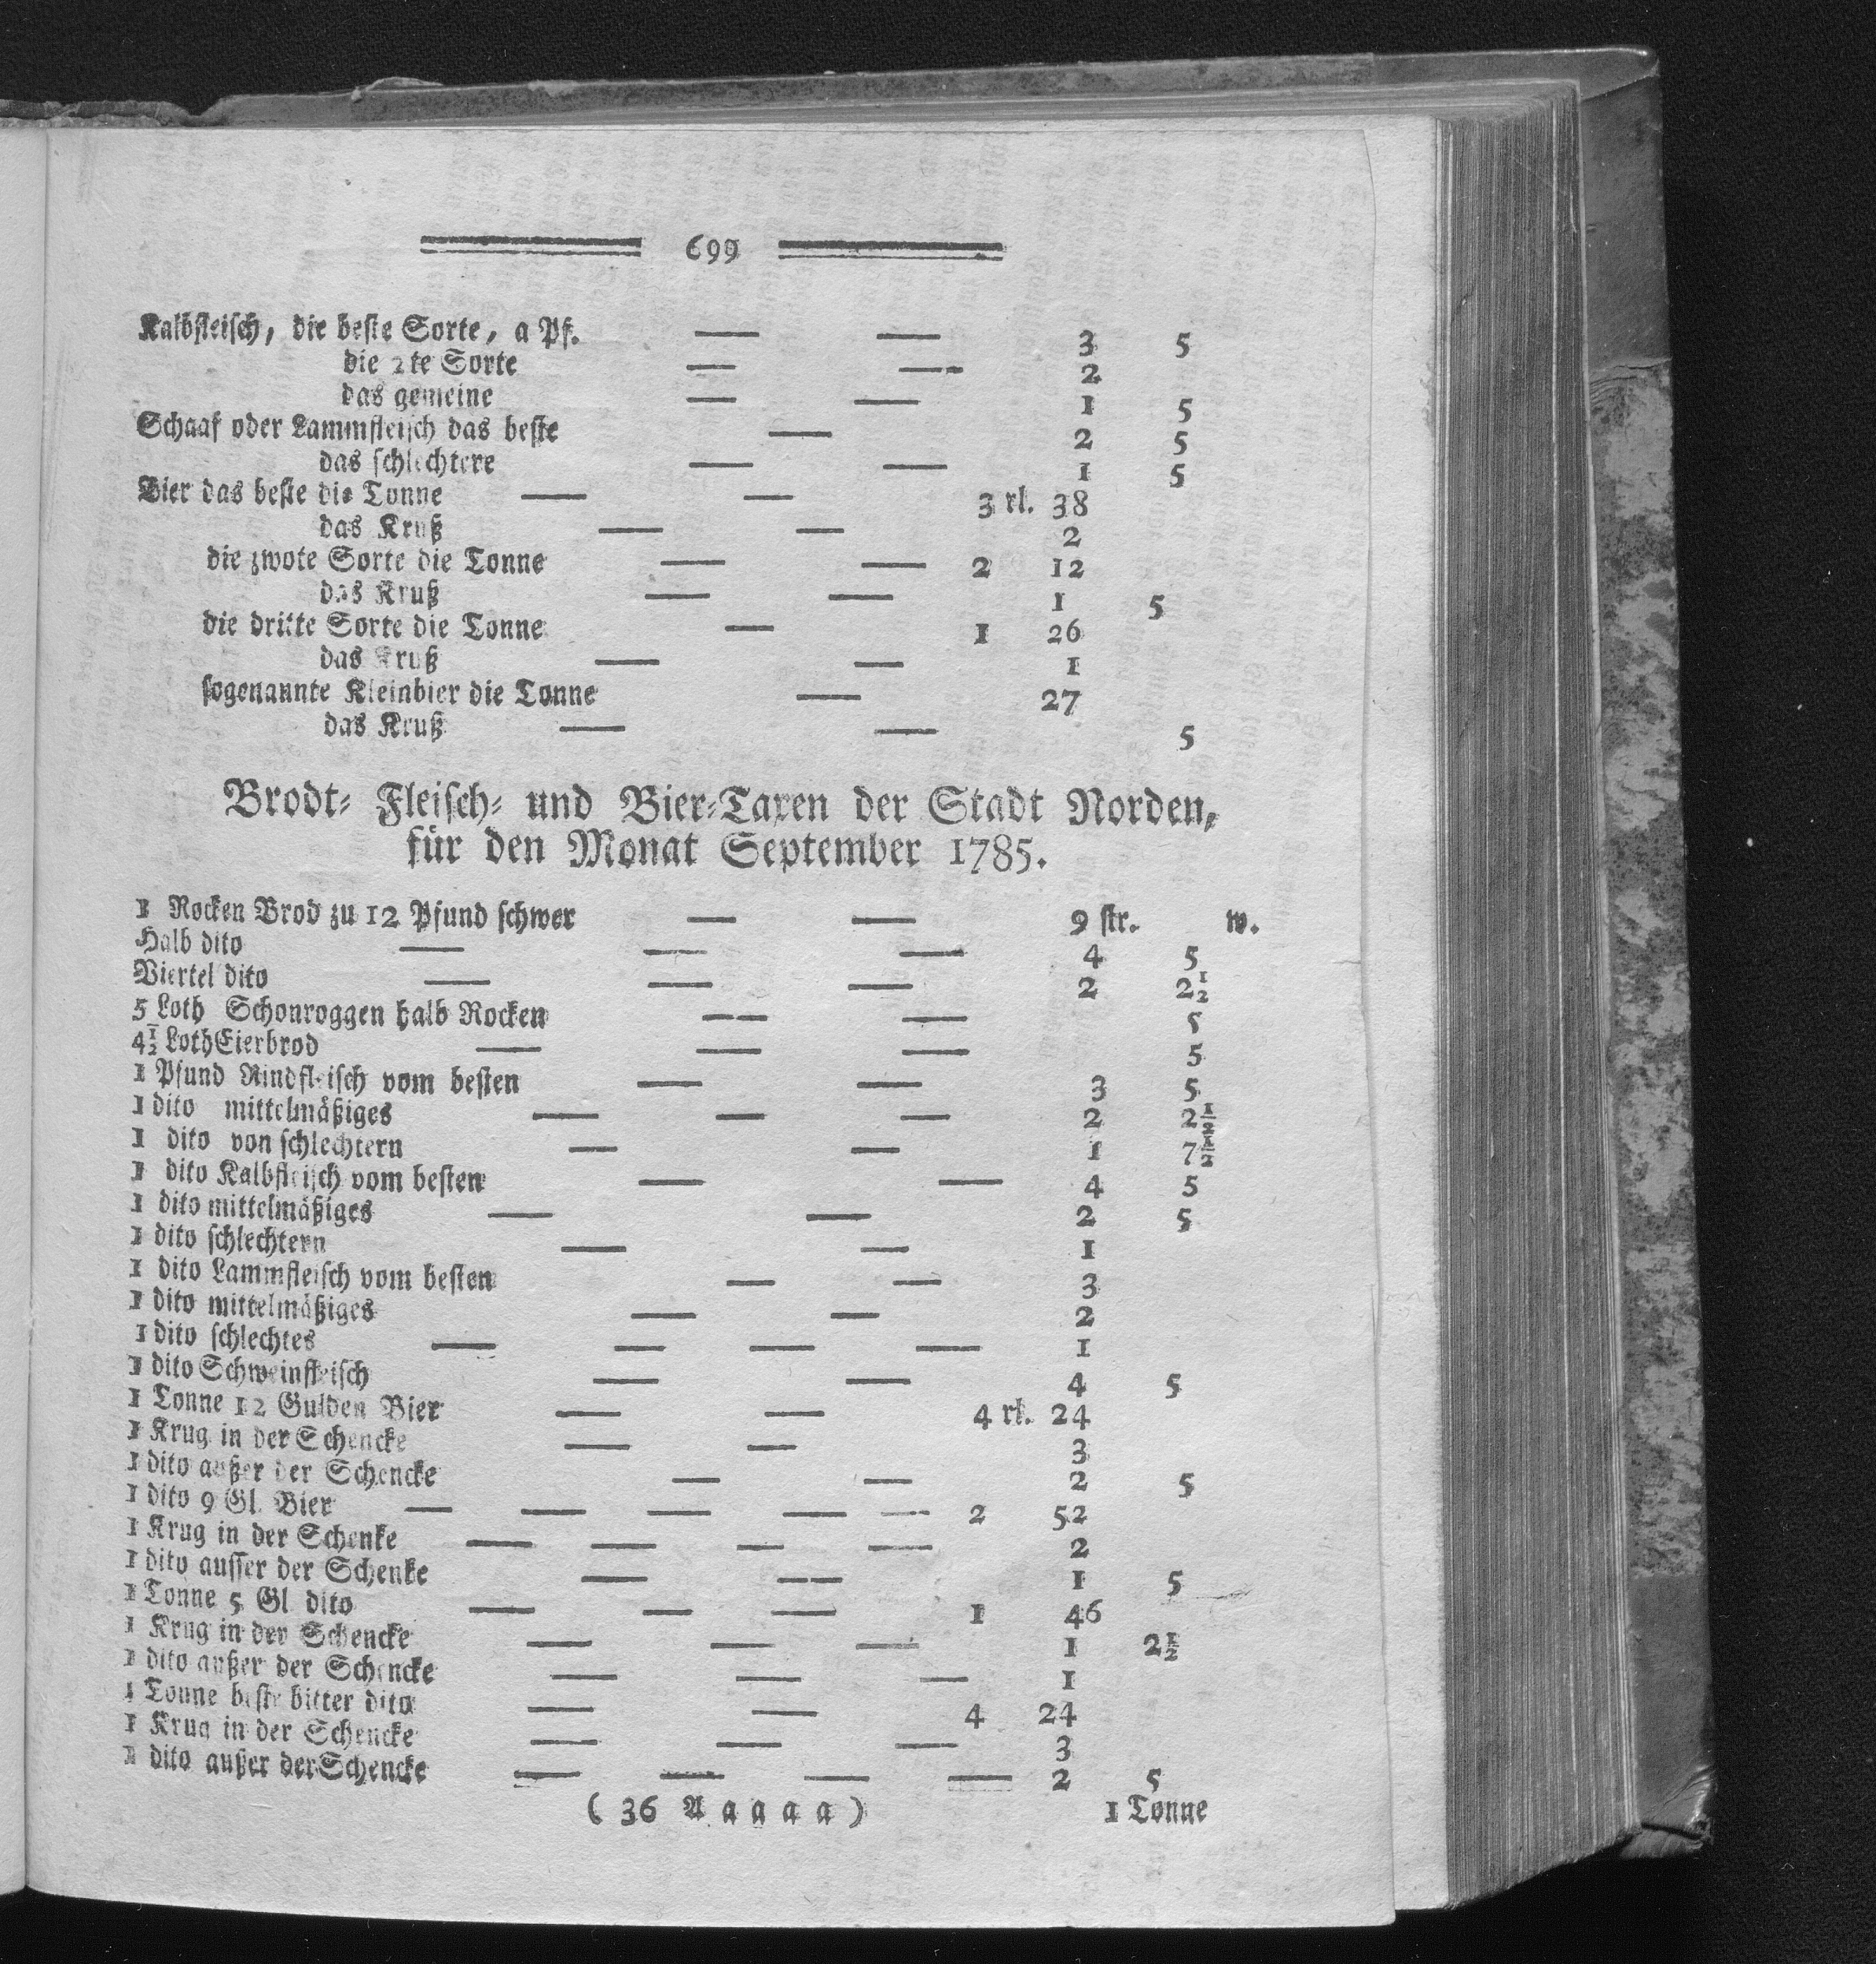 699
Kalbfleisch, die beste Sorte, a Pf. — — 3 5
die 2te Sorte — — 2
das gemeine — — 1 5
Schaaf oder Lammfleisch das beste — 2 5
das schlechtere — — 1 5
Bier das beste die Tonne — — 3 rl. 38
das Kruß — — 2
die zwote Sorte die Tonne — — 2 12
das Kruß — — 1 5
die dritte Sorte die Tonne — 1 26
das Kruß — — 1
sogenannte Kleinbier die Tonne — 27
das Kruß — — 5
Brodt- Fleisch- und Bier-Taxen der Stadt Norden,
für den Monat September 1785.
1 Rocken Brod zu 12 Pfund schwer — — 9 str. w.
Halb dito — — — 4 5
Viertel dito — — — 2 2½
5 Loth Schonroggen halb Rocken — — 5
4½ Loth Eierbrod — — — 5
1 Pfund Rindfleisch vom besten — — 3 5
1 dito mittelmäßiges — — — 2 2½
1 dito von schlechtern — — 1 7½
1 dito Kalbfleisch vom besten — — 4 5
1 dito mittelmäßiges — — 2 5
1 dito schlechtern — — 1
1 dito Lammfleisch vom besten — — 3
1 dito mittelmäßiges — — 2
1 dito schlechtes — — — — 1
1 dito Schweinfleisch — — 4 5
1 Tonne 12 Gulden Bier — — 4 rl. 24
1 Krug in der Schencke — — 3
1 dito außer der Schencke — — 2 5
1 dito 9 Gl. Bier — — — — — 2 52
1 Krug in der Schenke — — — — 2
1 dito ausser der Schenke — — 1 5
1 Tonne 5 Gl dito — — — 1 46
1 Krug in der Schencke — — — 1 2½
1 dito außer der Schencke — — — 1
1 Tonne beste bitter dito — — 4 24
1 Krug in der Schencke — — — 3
1 dito außer der Schencke — — — — 2 5
( 36 A a a a a ) 1 Tonne